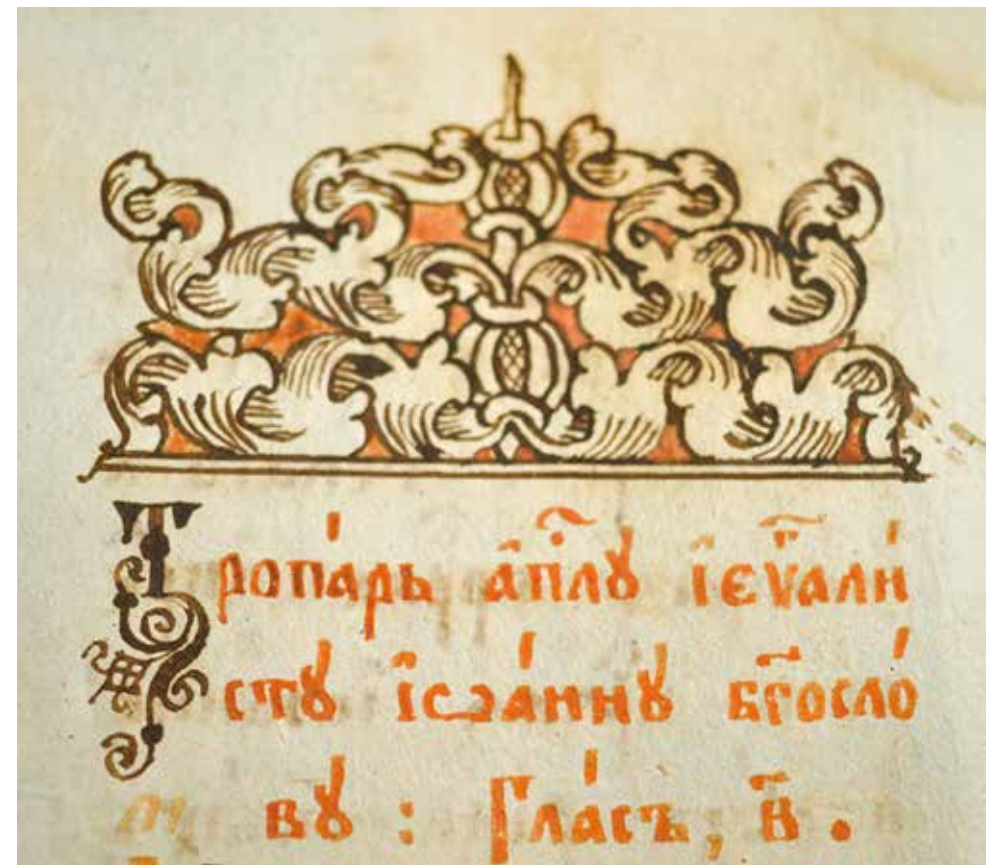 Тропа́рь а҆п҃лꙋ і҆єѵ҃али́
стꙋ́ і҆ѡа́ннꙋ бг҃осло́
вꙋ́ : Гла́съ, в҃ .